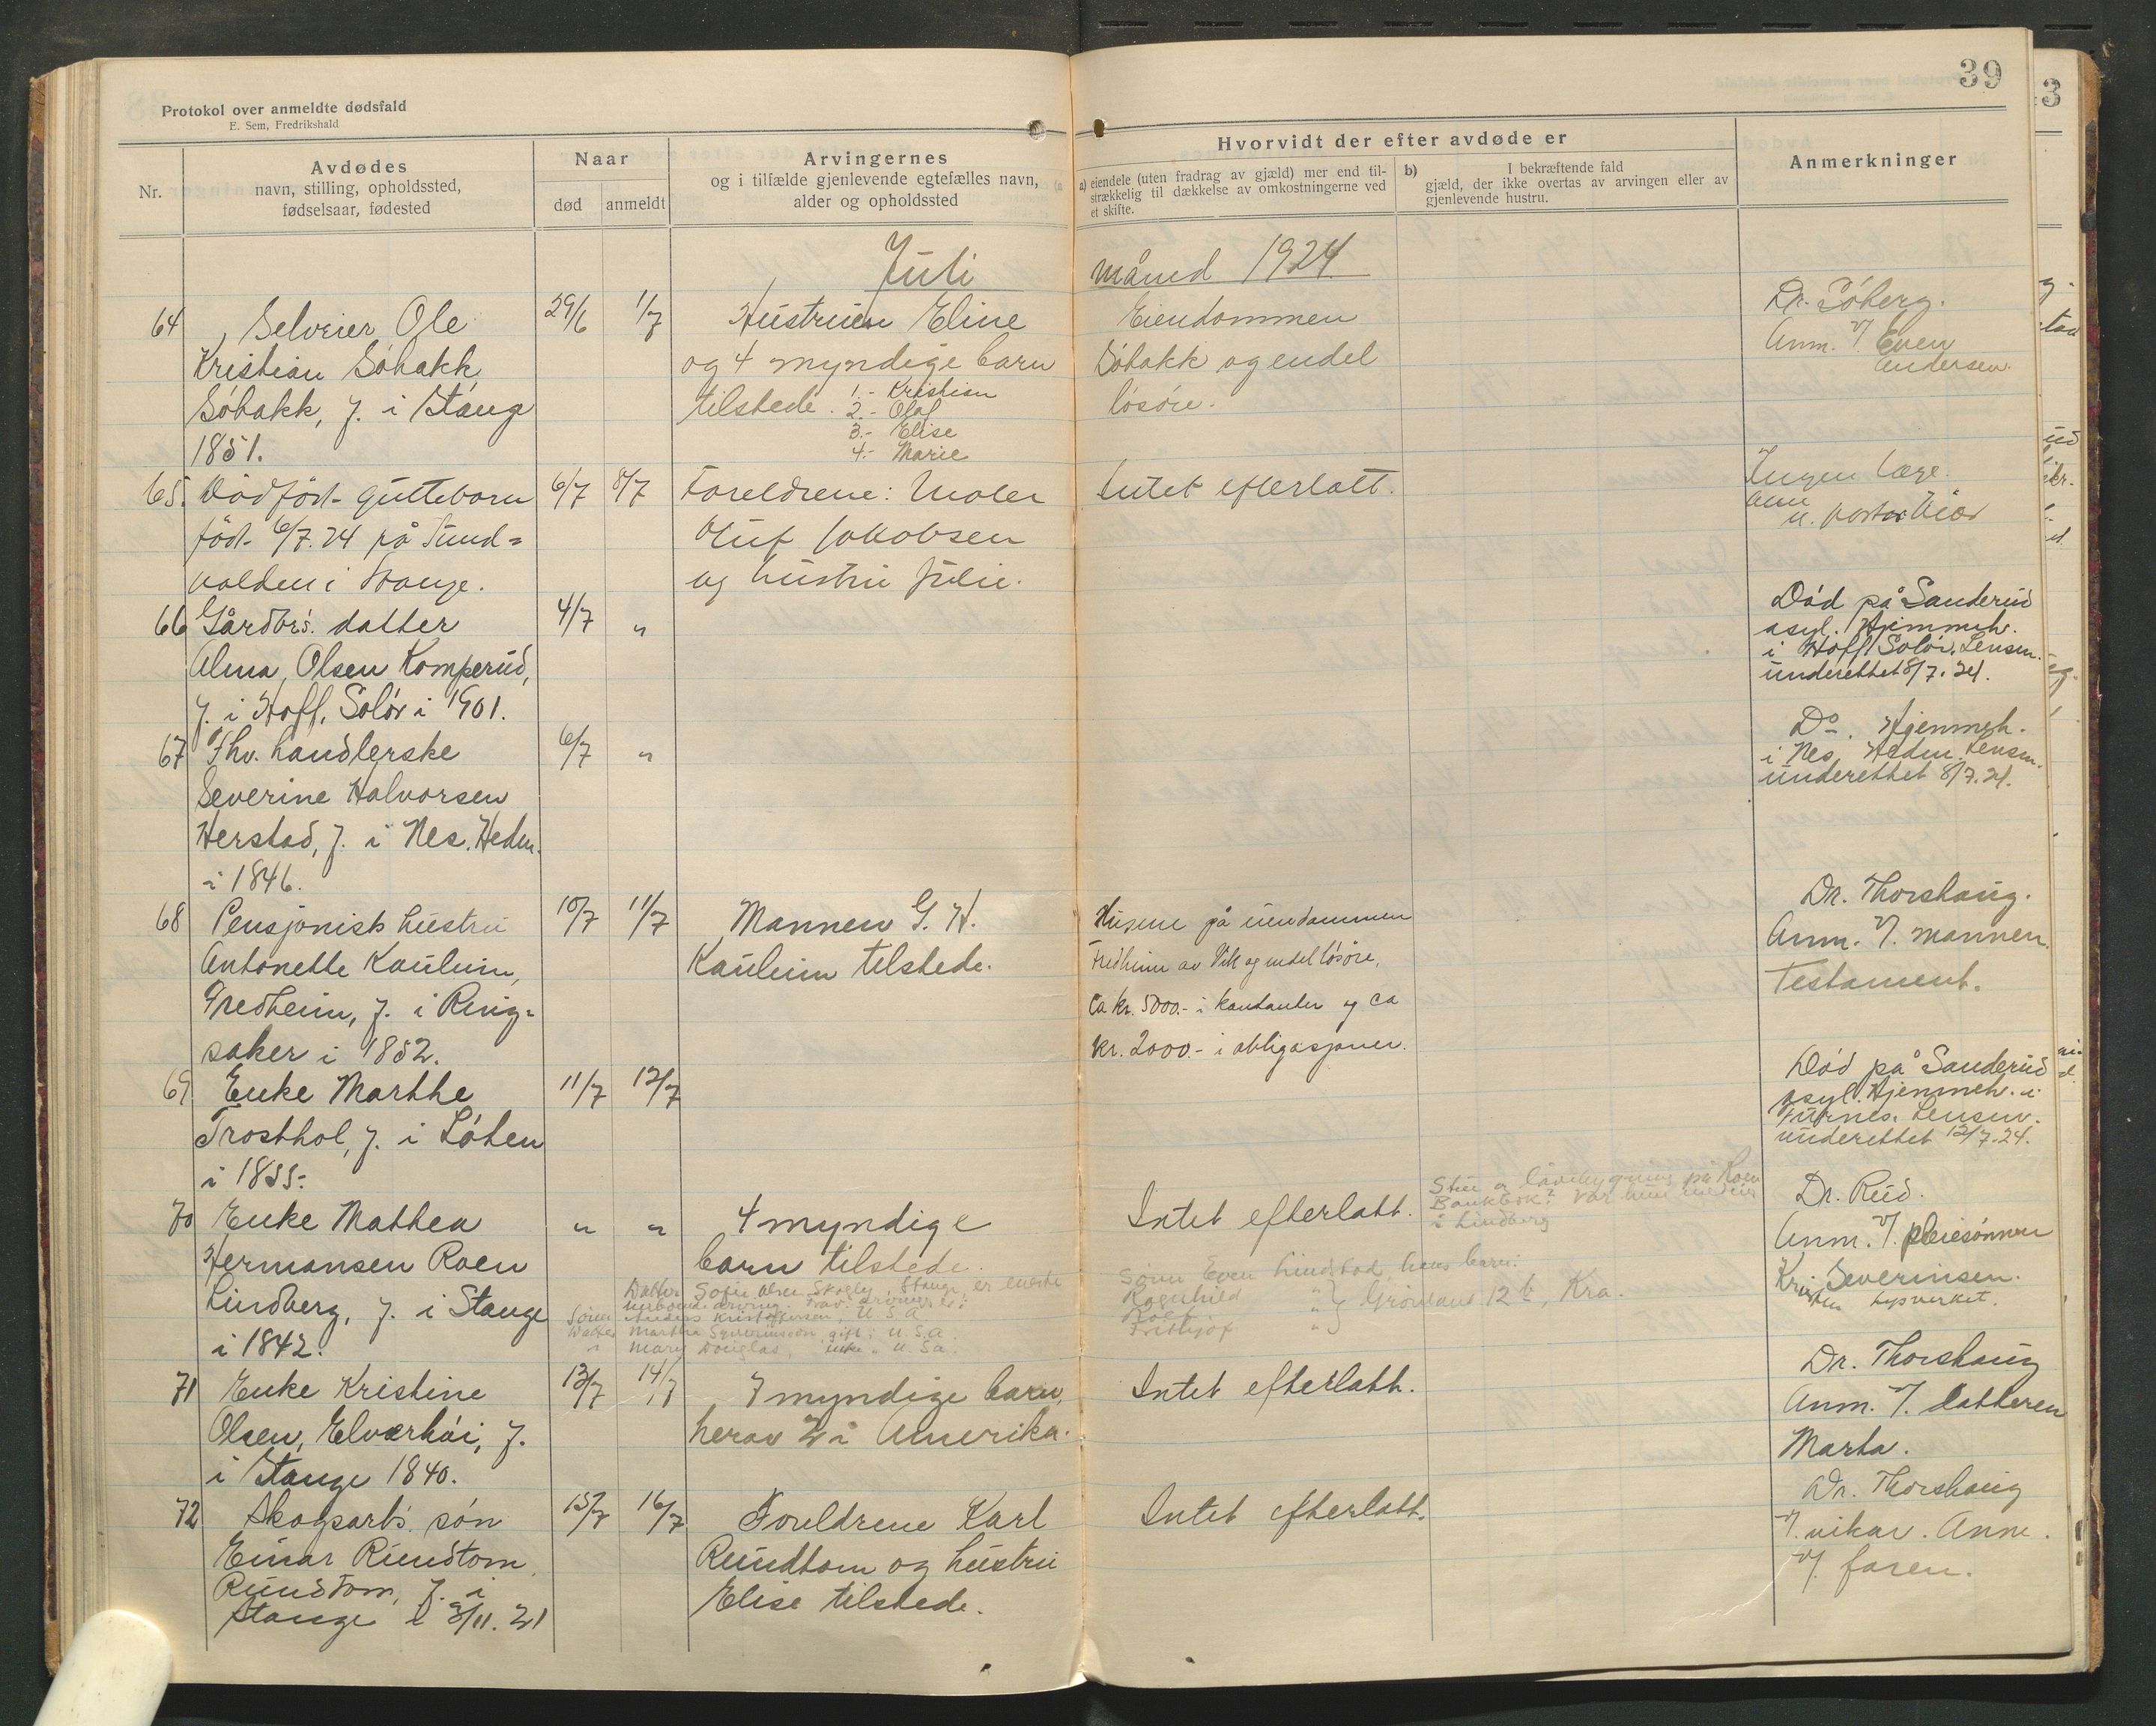 39
Protokol over anmeldte dødsfald
E. Sem, Fredrikshald
Nr.
Avdødes
navn, stilling, opholdssted,
fødselsaar, fødested
Naar
død
anmeldt
Arvingernes
og i tilfælde gjenlevende egtefælles navn,
alder og opholdssted
Hvorvidt der efter avdøde er
a) eiendele (uten fradrag av gjæld) mer end til-
strækkelig til dækkelse av omkostningerne ved
et skifte.
b) I bekræftende fald
gjæld, der ikke overtas av arvingen eller av
gjenlevende hustru.
Anmerkninger
Juli måned 1924
64
Selveier Ole
Kristian Söbakk
Söbakk, f. i Stange
1851.
29/6
1/7
Hustruen Eline
og 4 myndige barn
tilstede.
1.- Kristian
2.- Olaf
3.- Elise
4.- Marie
Eiendommen
Söbakk og endel
lösöre.
Dr. Söberg.
Anm. v/ Even
Andersen.
65.
Dödfödt guttebarn
född 6/7.24 på Sund=
volden i Stange.
6/7
8/7
Foreldrene: Maler
Oluf Jakobsen
og hustru Julie.
Intet efterlatt.
Ingen læge.
Anm
66
Gårdbr's. datter
Alma Olsen Komperud,
f. i Hoff, Solör i 1901.
4/7
"
Död på Sanderud
asyl. Hjemmeh.
i Hoff Solör. Lensm.
underettet 8/7.24.
67
Fhv. handlerske
Severine Halvorsen
Herstad, f. i Nes, Hedm.
i 1846.
6/7
"
Do. Hjemmeh.
i Nes, Hedm. Lensm.
underettet 8/7.24.
68
Pensjonists hustru
Antonette Kauleim,
Fredheim, f. i Ring=
saker i 1852.
10/7
11/7
Mannen G. H.
Kauleim tilstede.
Husene på eiendommen
Fredheim av Vik og endel lösöre,
ca kr. 5000.- i kontanter og ca
kr. 2000.- i obligasjoner.
Dr. Thorshaug.
Anm. v/ mannen.
Testament.
69
Enke Marthe
Trosthol, f. i Löten
i 1855.
11/7
12/7
Död på Sanderud
asyl. Hjemmeh. i
Furnes. Lensm.
underettet 12/7.24.
70
Enke Mathea
Hermansen Roen
Lindberg, f. i Stange
i 1842.
"
"
4 myndige
barn tilstede.
Datter Sofie Olsen Skogly, Stange, er eneste
Sönn Anders Kristoffersen, U.S.A.
Datter Martha Severinsson, gift, i U.S.A.
" Mary Douglas, enke, " U.S.A.
Intet efterlatt.
Sönn Even Lindstad, hans barn:
Ragnhild "
Roe " } Grönland 12 b, Kra.
Frithjof "
Bankbok? Var hun
i Lindberg
Dr. Rud.
Anm. v/ pleiesönnen
Kristen Severinsen.
Lysverket.
71
Enke Kristine
Olsen, Elverhöi, f.
i Stange 1840.
13/7
14/7
7 myndige barn,
herav 2 i Amerika.
Intet efterlatt.
Dr. Thorshaug
Anm. v/ datteren
Marta.
72
Skogsarb's. sön
Einar Rundtom
Rundtom, f. i
Stange 3/11.21
15/7
16/7
Foreldrene Karl
Rundtom og hustru
Elise tilstede.
Intet efterlatt.
Dr. Thorshaug
v/ vikar. Anm.
v/ faren.